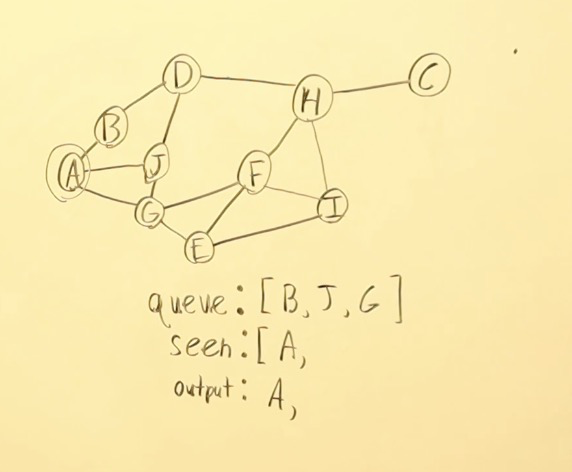 D
C
H
B
J
F
A
G
I
E
queue: [B, J, G]
seen: [A,
output: A,